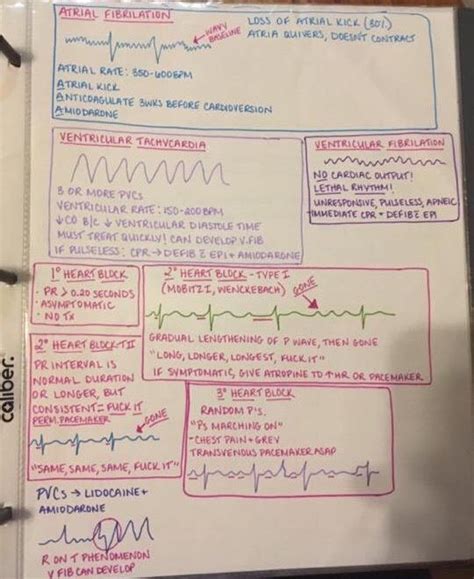 ATRIAL FIBRILLATION
WAVY
BASELINE
LOSS OF ATRIAL KICK (30%)
ATRIA QUIVERS, DOESN'T CONTRACT
ATRIAL RATE: 350-600BPM
ATRIAL KICK
ANTICOAGULATE 3WKS BEFORE CARDIOVERSION
AMIODARONE
VENTRICULAR TACHYCARDIA
3 OR MORE PVCS
VENTRICULAR RATE: 150-200BPM
↓CO B/C ↓ VENTRICULAR DIASTOLE TIME
MUST TREAT QUICKLY! CAN DEVELOP V.FIB
IF PULSELESS: CPR → DEFIB c̄ EPI + AMIODARONE
VENTRICULAR FIBRILLATION
NO CARDIAC OUTPUT!
LETHAL RHYTHM!
UNRESPONSIVE, PULSELESS, APNEIC
-IMMEDIATE CPR + DEFIB c̄ EPI
1° HEART BLOCK
- PR > 0.20 SECONDS
- ASYMPTOMATIC
- NO TX
2° HEART BLOCK - TYPE I
(MOBITZ I, WENCKEBACH)
GONE
GRADUAL LENGTHENING OF P WAVE, THEN GONE
"LONG, LONGER, LONGEST, FUCK IT"
IF SYMPTOMATIC, GIVE ATROPINE TO ↑HR OR PACEMAKER
2° HEART BLOCK-TII
PR INTERVAL IS
NORMAL DURATION
OR LONGER, BUT
CONSISTENT = FUCK IT
PERM. PACEMAKER
GONE
"SAME, SAME, SAME, FUCK IT"
3° HEART BLOCK
RANDOM P'S.
"PS MARCHING ON"
- CHEST PAIN + GREY
TRANSVENOUS PACEMAKER ASAP
PVCS → LIDOCAINE +
AMIODARONE
R ON T PHENOMENON
V FIB CAN DEVELOP
caliber.